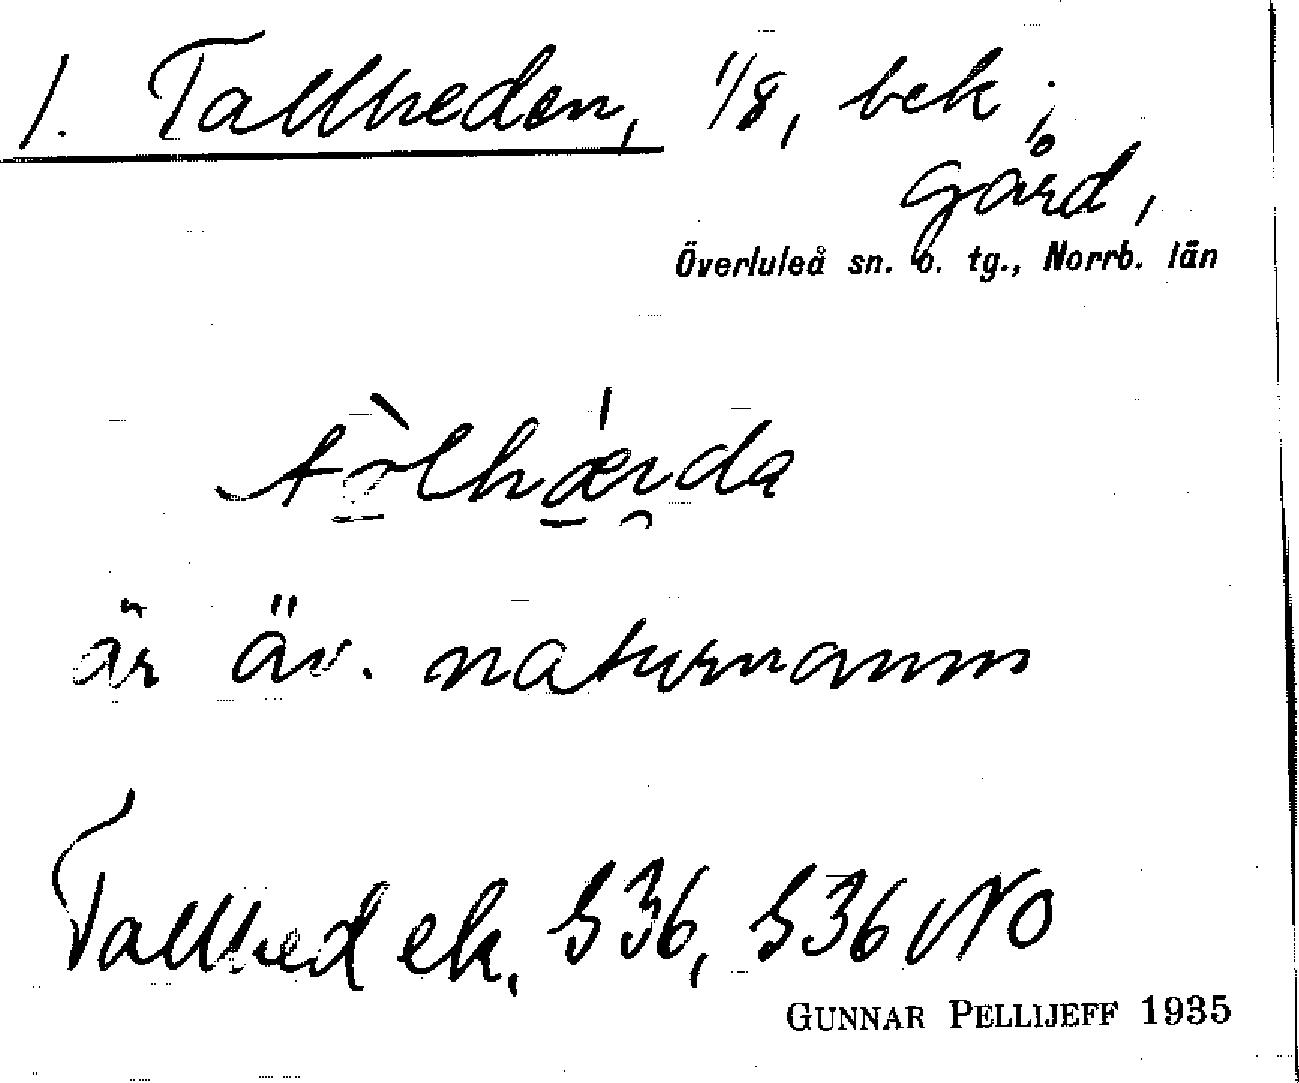 1. Tallheden, 1/8, bek;
gård,
Överluleå sn. o. tg., Norrb. län
är äv. naturnamn
Tallhed ek, S36, S36 NO
GUNNAR PELLIJEFF 1935